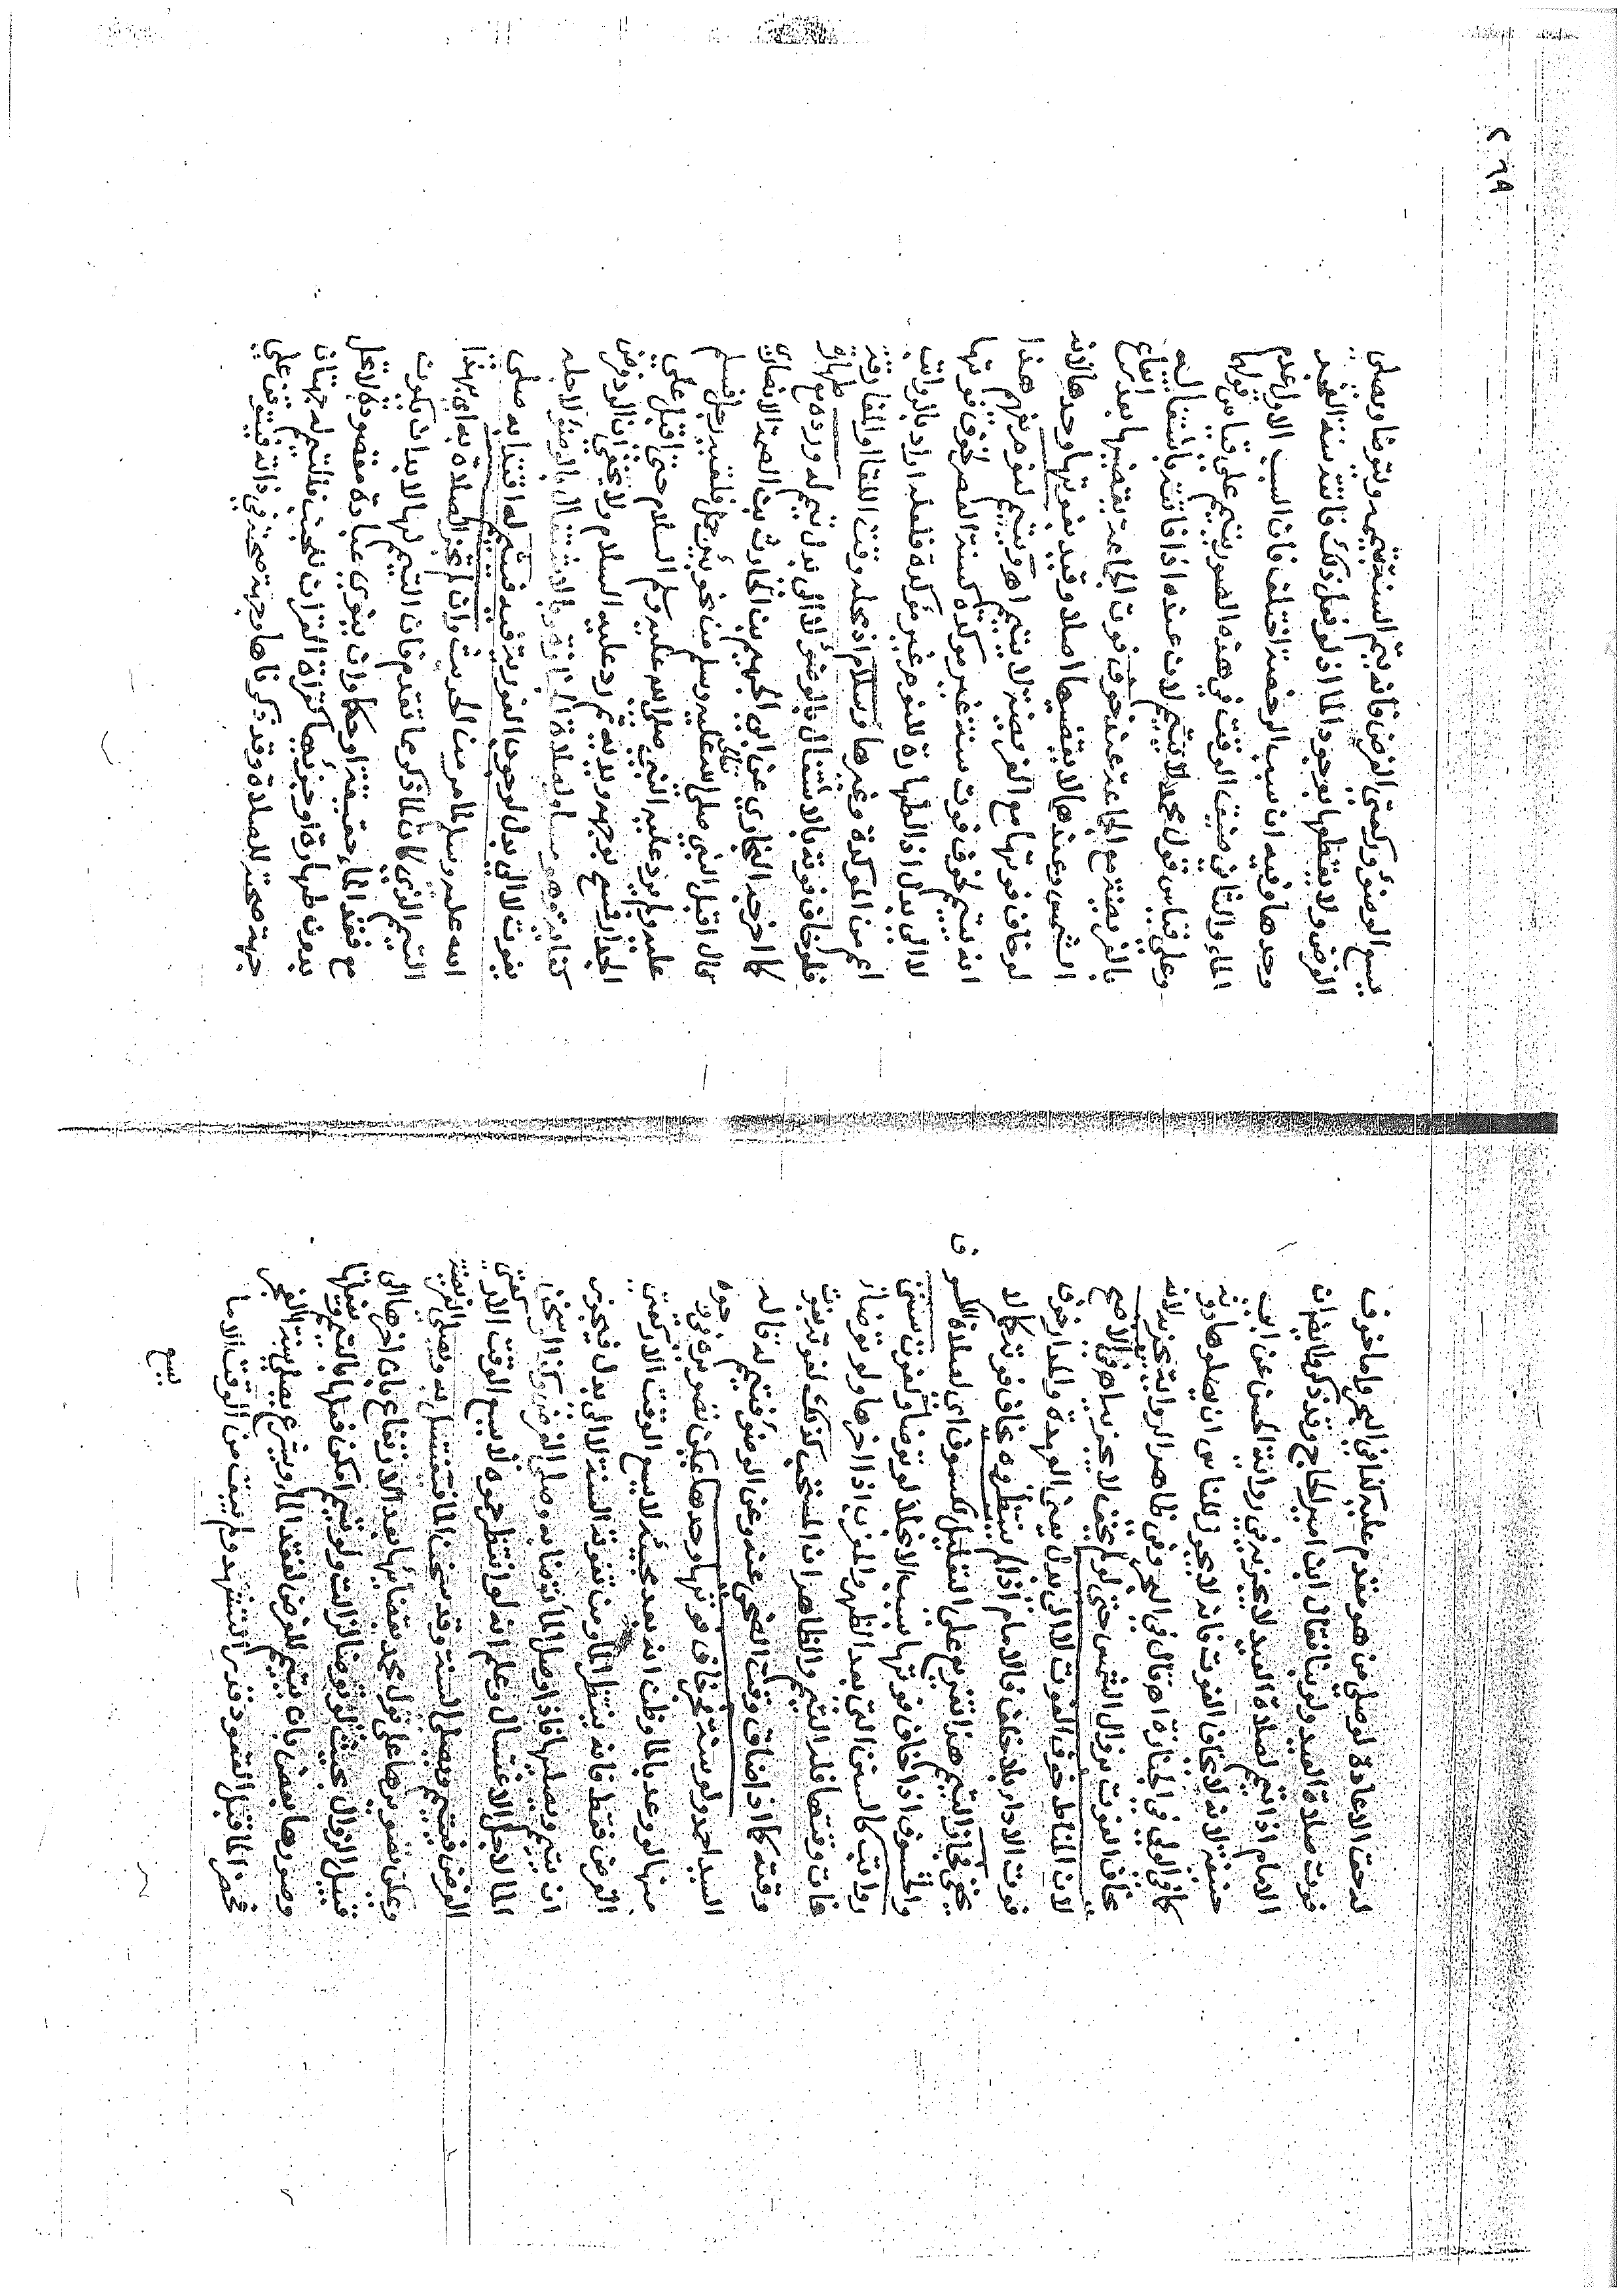 له جمعت الاعادة لو صلى من هو مقدم عليه كذا في البحر واما خوف
فوت صلاة العيد ولو بنا فقال ابن امير الحاج وقد ذكروا ايضا ان
الامام اذا تيمم لصلاة العيد لا يجزيه في رواية الحسن عن ابي
حنيفة لانه لا يخاف الفوت فانه لا يجوز للناس ان يصلوها دونه
كما في الولي في الجنازة اه قال في البحر وفي ظاهر الرواية يجزيه لانه
يخاف الفوت بزوال الشمس حتى لو لم يخف لا يجزيه اه في الاصح
لان المناط خوف الفوت لا الى بدل يعني العمدة والمدار خوف
فوت الادا بلا خلف فالامام اذا لم ينتظروه يخاف فوته كما لا
يخفى فجاز التيمم هذا تفريع على التعليل لكسوف اي لصلاة الكسوف
والخسوف اذا خاف فوتها بسبب الانجلا لو توضا ولفوت سنن
رواتب كالسنن التي بعد الظهر والمغرب اذا اخرها ولو توضا
فات وقتها فله التيمم والظاهر ان المستحب كذلك لفوته بفوت
وقته كما اذا ضاق وقت الضحى عنه وعن الوضوء فيتيمم له قاله
السيد احمد ولو سنة فجر خاف فوتها وحدها يمكن تصويره
منها لو وعد بالما وظن انه بعد مجيئه لا يسع الوقت الا ركعتي
الفرض فقط فانه ينتظر الما ومن تفوته السنة لا الى بدل فيجوز
ان يتيمم ويصليها فاذا وصل الما توضا به وصلى الفرض وكذا لو سخن
الما لاجل الاغتسال وعلم انه لو انتظر حموه لا يسع الوقت الا ركعتي
الفرض فيتيمم ويصلى السنة وقد سخن الما فيغتسل به ويصلي الفريضة
وعلى تصويرها على قول محمد بقضائها بعد الارتفاع بان اخرها الى
قبيل الزوال بحيث لو توضا لزالت ولو تيمم امكن فعلها فالتيمم
وصورها بعض بان يتيمم للفرض لفقد الما ويشرع يصلي سنة الفجر
فحضر الما قبل القعود قدر التشهد ولم يبق من الوقت الا ما
يسع
٢٦٩
يسع الوضوء وركعتي الفرض فانه يتم السنة بتيممه ويتوضا ويصلى
الفرض ولا يقطعها بوجود الما اذ لو فعل ذلك فاتته سنة الفجر
وحدها وفيه ان سبب الرخصة اختلف فان السبب الاول عدم
الما والثاني ضيق الوقت ففي هذه الصورة يتيمم على قياس قولهما
وعلى قياس قول محمد لا يتيمم لان عنده اذا فاتته باشتغاله
بالفريضة مع الجماعة عند خوف فوت الجماعة يقضيها بعد ارتفاع
الشمس وعندهما لا يقضيها اصلا وقيد بفوتها وحدها لانه
لو خاف فوتها مع الفريضة لا يتيمم اه
انه يتيمم لخوف فوت سنة غير مؤكدة كسنة العصر
لا الى بدل اذ الطهارة للنوم غير مؤكدة فلعله اراد بالرواتب
اعم من المؤكدة وغيرها وسلام اذ محله وقت اللقا او المفارقة
فلو خاف فوته بالاشتغال بالوضوء لا الى بدل تيمم له ورده
كما اخرجه البخاري عن ابي الجهيم بن الحارث بن الصمة الانصاري
قال اقبل النبي صلى الله تعالى عليه وسلم من نحو بئر جمل فلقيه رجل فسلم
عليه ولم يرد عليه النبي صلى الله عليه وسلم السلام حتى اقبل على
الجدار فمسح بوجهه ويديه ثم رد عليه السلام ولا يخفى ان الرد فرض
كفاية
يفوت لا الى بدل لوجوب الفورية فيه فيتيمم له اقتدا به صلى
الله عليه وسلم لما مر من الحديث وان لم تجز الصلاة به اي بهذا
التيمم الذي كان لما ذكر ما تقدم فان التيمم لها لا بد ان يكون
مع فقد الما حقيقة او حكما وان ينوى عبادة مقصودة لا تحل
بدون طهارة او جزئها كقراة القران لجنب فالتيمم له جهتان
جهة صحته للصلاة وقد ذكرناها وجهة صحته في ذاته فيتوقف على